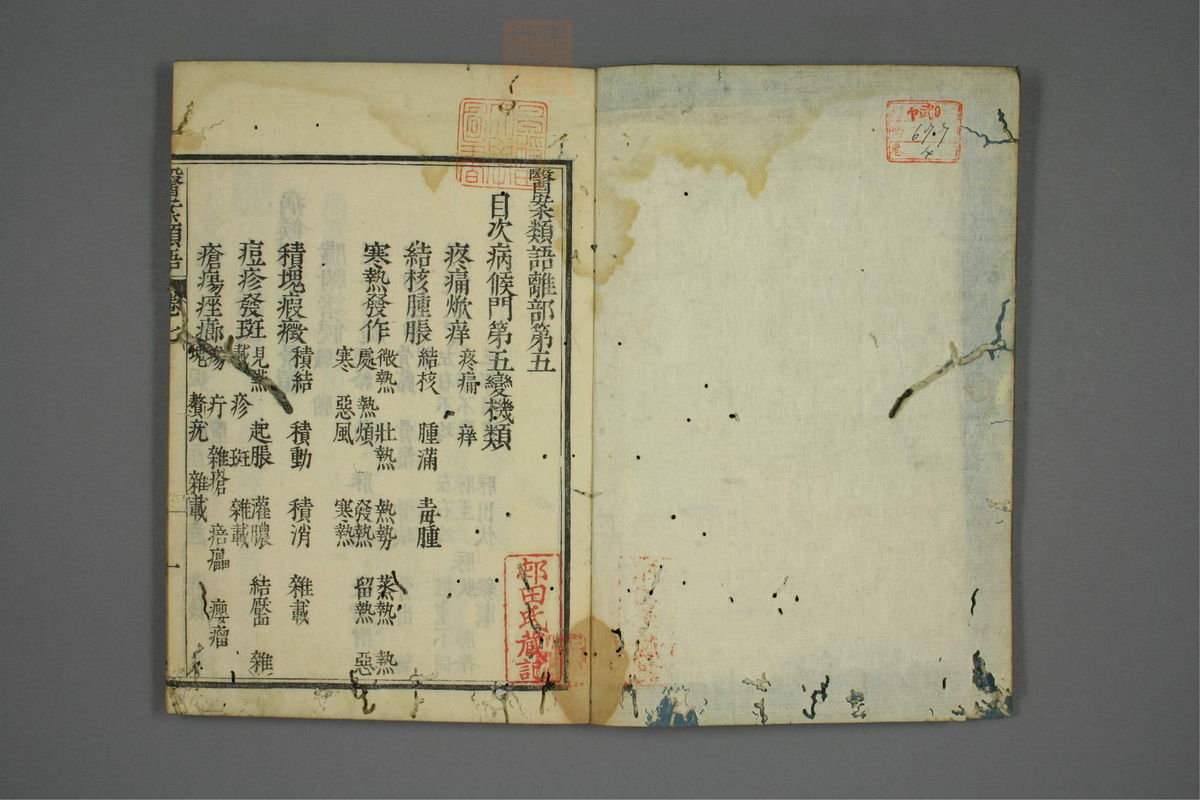 醫案類語離部第五
目次病候門第五變機類
疼痛焮痒 疼痛 痒
結核腫脹 結核 腫滿 毒腫
寒熱發作 微熱 壯熱 熱勢 蒸熱 熱
處 熱煩 發熱 留熱 惡
寒 惡風 寒熱
積塊瘕癥 積結 積動 積消 雜載
痘疹發斑 見點 起脹 灌膿 結靨 雜
載 疹 斑 雜載
瘡瘍痤癤 瘍 疔 雜瘡 瘻瘤
塊 贅疣 雜載
醫案類語 卷七 一
邨田氏藏記
67.7
4